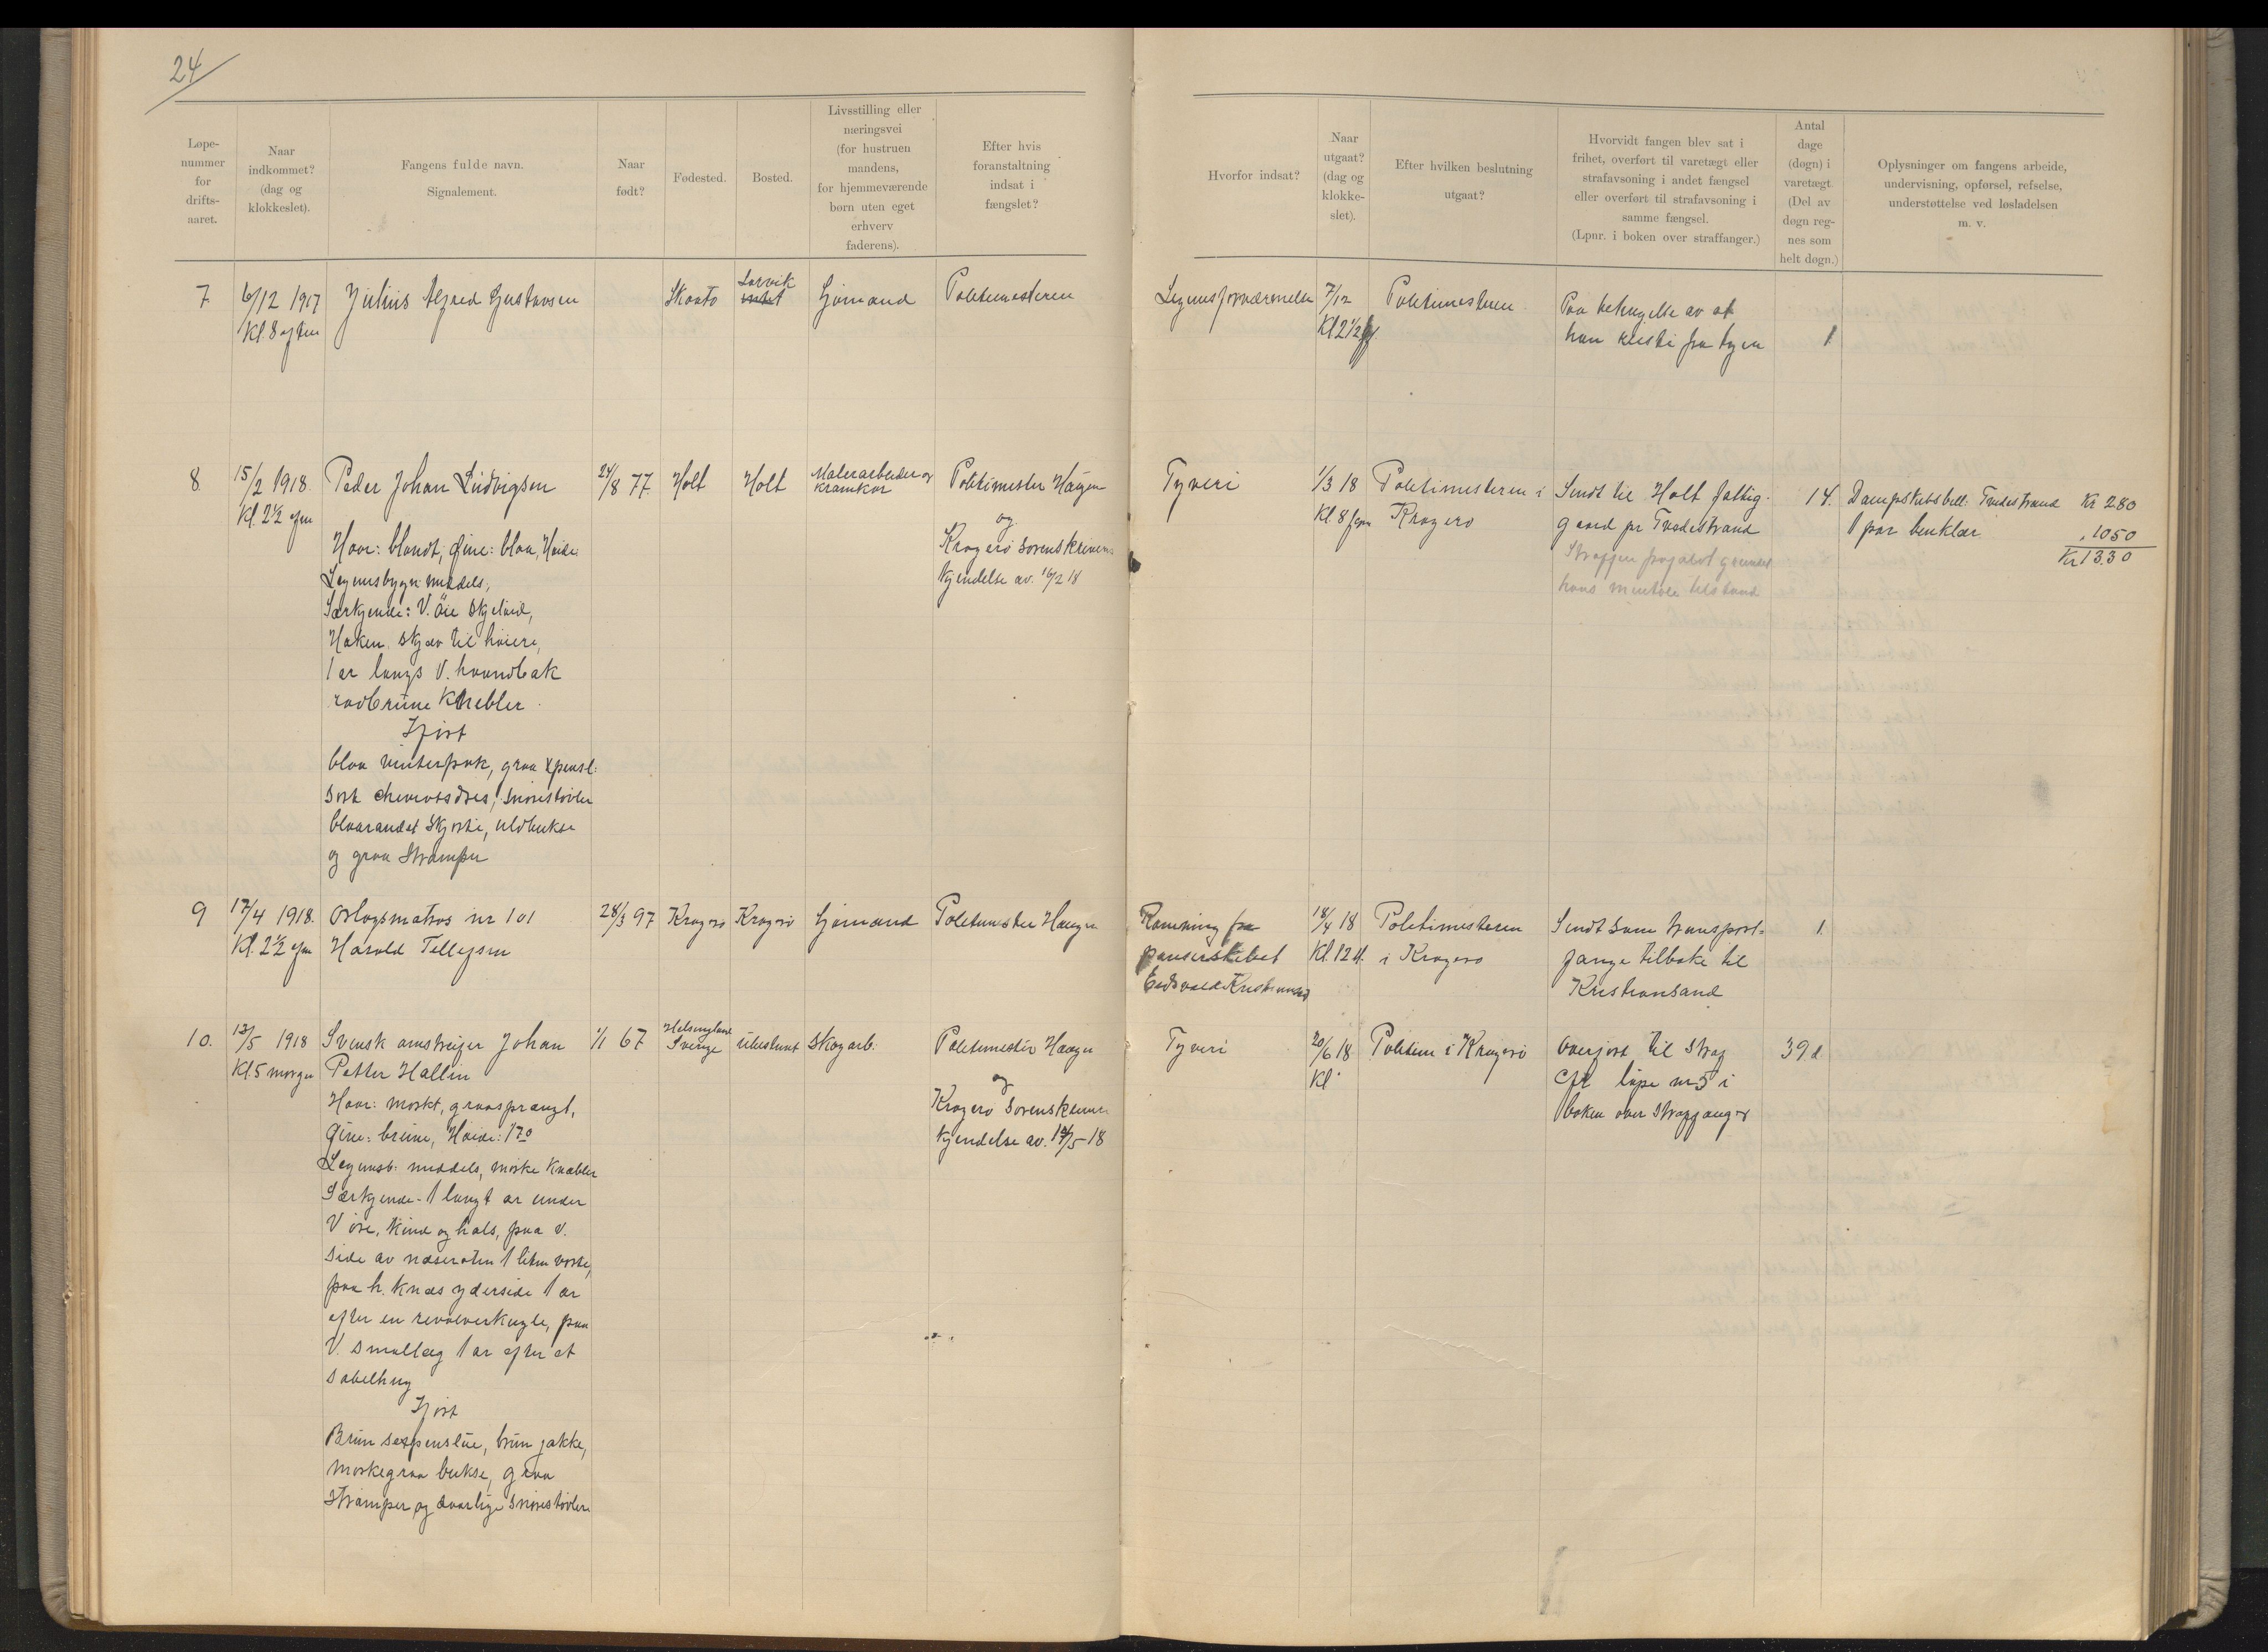 24
Løpe-
nummer
for
drifts-
aaret.
Naar
indkommet?
(dag og
klokkeslet).
Fangens fulde navn.
Signalement.
Naar
født?
Fødested.
Bosted.
Livsstilling eller
næringsvei
(for hustruen
mandens,
for hjemmeværende
børn uten eget
erhverv
faderens).
Efter hvis
foranstaltning
indsat i
fængslet?
Hvorfor indsat?
Naar
utgaat?
(dag og
klokke-
slet).
Efter hvilken beslutning
utgaat?
Hvorvidt fangen blev sat i
frihet, overført til varetægt eller
strafavsoning i andet fængsel
eller overført til strafavsoning i
samme fængsel.
(Lpnr. i boken over straffanger.)
Antal
dage
(døgn) i
varetægt.
(Del av
døgn reg-
nes som
helt døgn.)
Oplysninger om fangens arbeide,
undervisning, opførsel, refselse,
understøttelse ved løsladelsen
m. v.
7. 6/12 1917 Julius Alfred Gustavsen Skaatø Larvik Sjømand Politimesteren
Kl. 8 aften
Legemsfornærmelse 7/12 Politimesteren Paa betingelse av at
Kl 2 1/2 han reiste fra byen 1
8. 15/2 1918. Peder Johan Ludvigsen 24/8 77. Holt Holt Malerarbeider og Politimester Haagen
Kl. 2 1/2 efm kramkar og
Haar: blondt, Øine: blaa, Høide: Kragerø Sorenskrivers
Legemsbygn: middels, kjendelse av. 16/2 18
Særkjende: V. øie skjeløid,
Haken skjæv til høire,
1 ar langs V. haandbak
rødbrune Knebler.
Iført
blaa vinterfrak, graa
sort cheviotsdres, snørestøvler
blaarandet Skjorte, uldbukse
og graa Strømper
Tyveri 1/3 18 Politimesteren i Sendt til Holt fattig- 14. Dampskibsbill: Tvedestrand Kr 2.80
Kl. 8 fm Kragerø gaard pr Tvedestrand 1 par benklær " 10.50
Kr 13.30
Straffen frafaldt grundet
hans mentale tilstand
9 17/4 1918. Orlogsmatros nr 101 28/3 97 Kragerø Kragerø Sjømand Politimester Haagen
Kl. 2 1/2 efm Harald Tellefsen
Rømning fra 18/4 18 Politimesteren Sendt som transport- 1.
panserskibet Kl. 12 i Kragerø fange tilbake til
Eidsvold Kristiansand Kristiansand
10. 13/5 1918 Svensk omstreifer Johan 1/1 67 Helsingland Ubestemt Skogarb. Politimester Haagen
Kl. 5 morgen Petter Hallin Sverige og
Haar: mørkt, graasprængt, Kragerø Sorenskrivers
Øine: brune, Høide: 170 kjendelse av. 14/5 18
Legemsb: middels, mørke Knebler
Særkjende - 1 langt ar under
V øre, Kind og hals, paa V.
side av næseroten 1 liten vorte,
paa h. knæs yderside 1 ar
efter en revolverkugle, paa
V. smallæg 1 ar efter et
sabelhug
Iført
Brun sixpenslue, brun jakke,
mørkegraa bukse, graa
Strømper og daarlige snørestøvler
Tyveri 20/6 18 Politiem i Kragerø Overført til Straf 39 d
Kl. cfr. løpe nr 5 i
boken over Straffanger